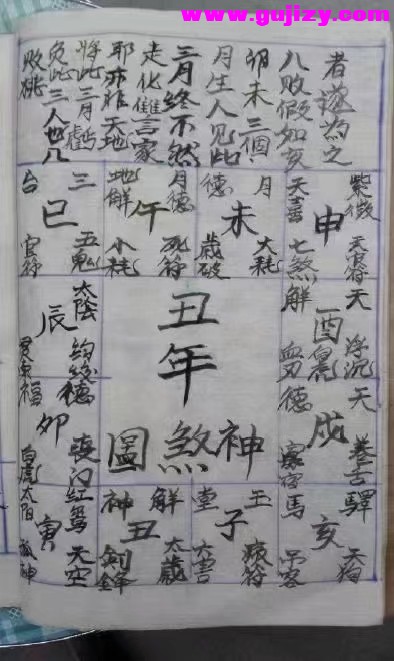 www.gujizy.com
者遂為之
八敗假如亥
卯未三個
月生人见此
三月終不然
走化讐言家
耶亦非天地
將此三月虧
免此三人也八
敗桃
紫微 天官符
申
天喜 七煞
月德 大耗
未
歲破
月德 死符
午
地解 小耗
三台 五鬼
巳
官符
太陰
辰
天解
浮沉
酉
血刃
丑年
神煞圖
天德
卷舌
戌
福德
卯
喪门
白虎
驛馬
天狗
亥
吊客
玉堂
病符
子
六害
解神
太歲
丑
劍鋒
紅鸞
天空
寅
太陽